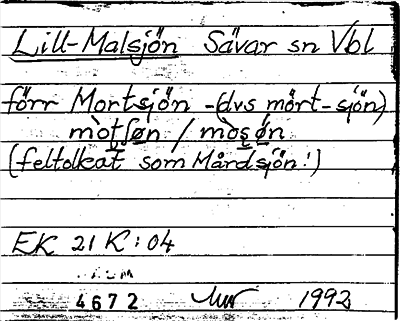 Lill-Malsjön Sävar sn Vbl
förr Mortsjön - (dvs mört-sjön)
(feltolkat som Mårdsjön!)
EK 21 K:04
4672 1992